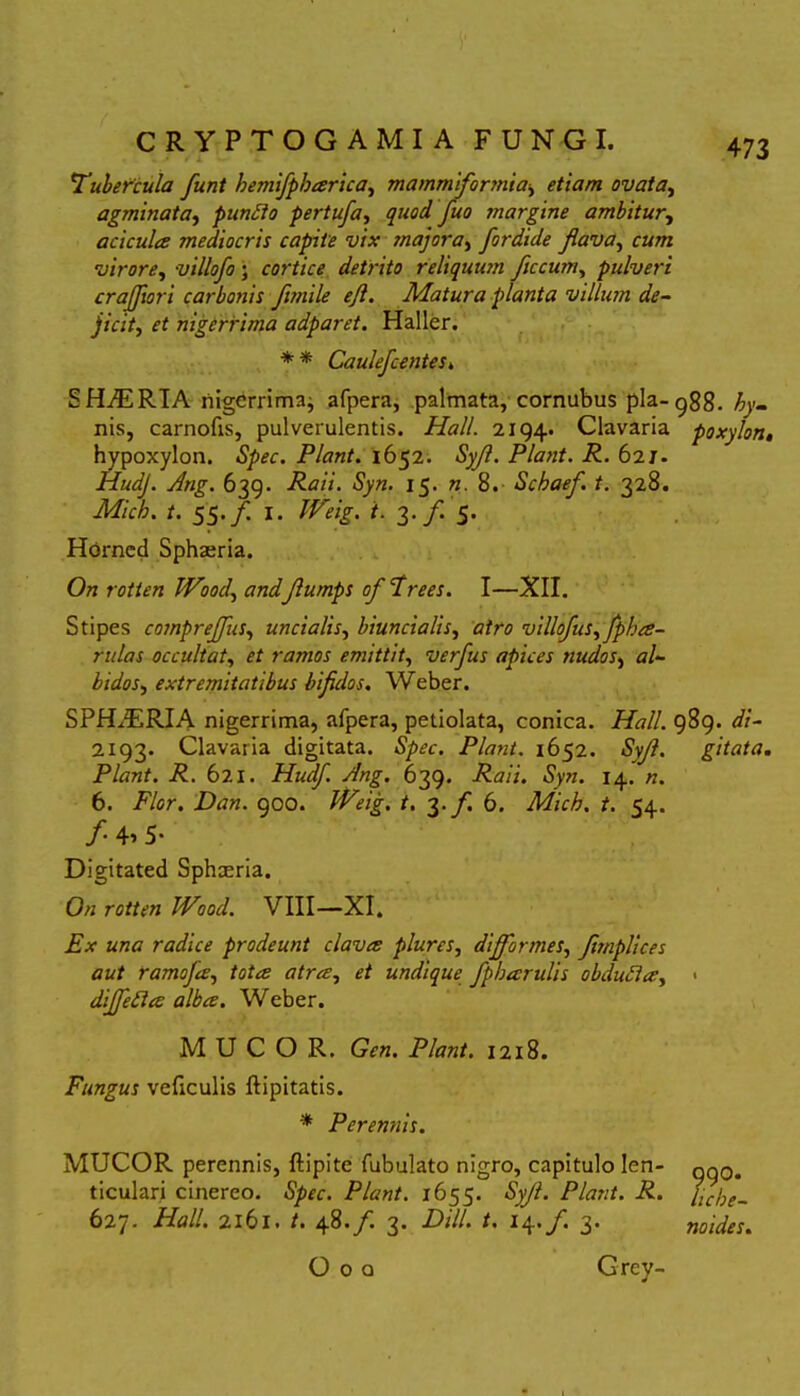 CRYPTOGAMIA FUNGI. 473
Tubercula ſunt hemiſphærica, mammiformia, etiam ovata,
agminata, puncto pertuſa, quod ſuo margine ambitur,
aciculæ mediocris capite vix majora, ſordide flava, cum
virore, villoſo; cortice detrito reliquum ſiccum, pulveri
craſſiori carbonis ſimile eſt. Matura planta villum de-
jicit, et nigerrima adparet. Haller.
* * Cauleſcentes.
SHÆRIA nigerrima, aſpera, palmata, cornubus pla- 988. hy-
nis, carnoſis, pulverulentis. Hall. 2194. Clavaria poxylon.
hypoxylon. Spec. Plant. 1652. Syſt. Plant. R. 621.
Hudſ. Ang. 639. Raii. Syn. 15. n. 8. Schaef. t. 328.
Mich. t. 55. f. 1. Weig. t. 3. f. 5.
Horned Sphæria.
On rotten Wood, and ſtumps of Trees. I—XII.
Stipes compreſſus, uncialis, biuncialis, atro villoſus, ſphæ-
rulas occultat, et ramos emittit, verſus apices nudos, al-
bidos, extremitatibus bifidos. Weber.
SPHÆRIA nigerrima, aſpera, petiolata, conica. Hall. 989. di-
2193. Clavaria digitata. Spec. Plant. 1652. Syſt. gitata.
Plant. R. 621. Hudſ. Ang. 639. Raii. Syn. 14. n.
6. Flor. Dan. 900. Weig. t. 3. f. 6. Mich. t. 54.
f. 4, 5.
Digitated Sphæria.
On rotten Wood. VIII—XI.
Ex una radice prodeunt clavæ plures, difformes, ſimplices
aut ramoſæ, totæ atræ, et undique ſphærulis obductæ,
diſſectæ albæ. Weber.
MUCOR. Gen. Plant. 1218.
Fungus veſiculis ſtipitatis.
* Perennis.
MUCOR perennis, ſtipite ſubulato nigro, capitulo len- 990.
ticulari cinereo. Spec. Plant. 1655. Syſt. Plant. R. liche-
627. Hall. 2161. t. 48. f. 3. Dill. t. 14. f. 3. noides.
O o o Grey-